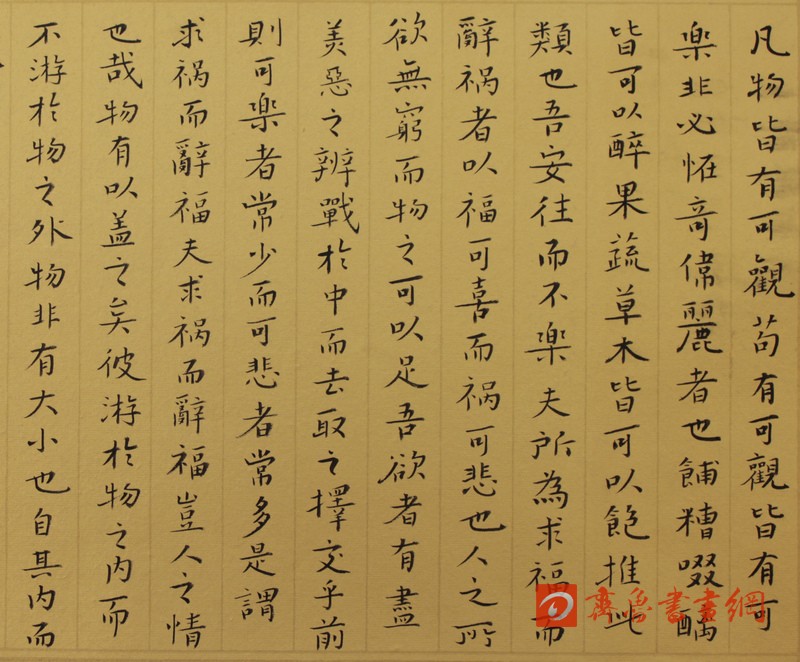 凡物皆有可觀苟有可觀皆有可
楽非必恠竒偉麗者也餔糟啜醨
皆可以醉果蔬草木皆可以飽推此
類也吾安往而不楽夫所為求福而
辭祸者以福可喜而祸可悲也人之所
欲無窮而物之可以足吾欲者有盡
美惡之辨戰於中而去取之擇交乎前
則可楽者常少而可悲者常多是謂
求祸而辭福夫求祸而辭福豈人之情
也哉物有以盖之矣彼游於物之内而
不游於物之外物非有大小也自其内而
齊魯書畫網